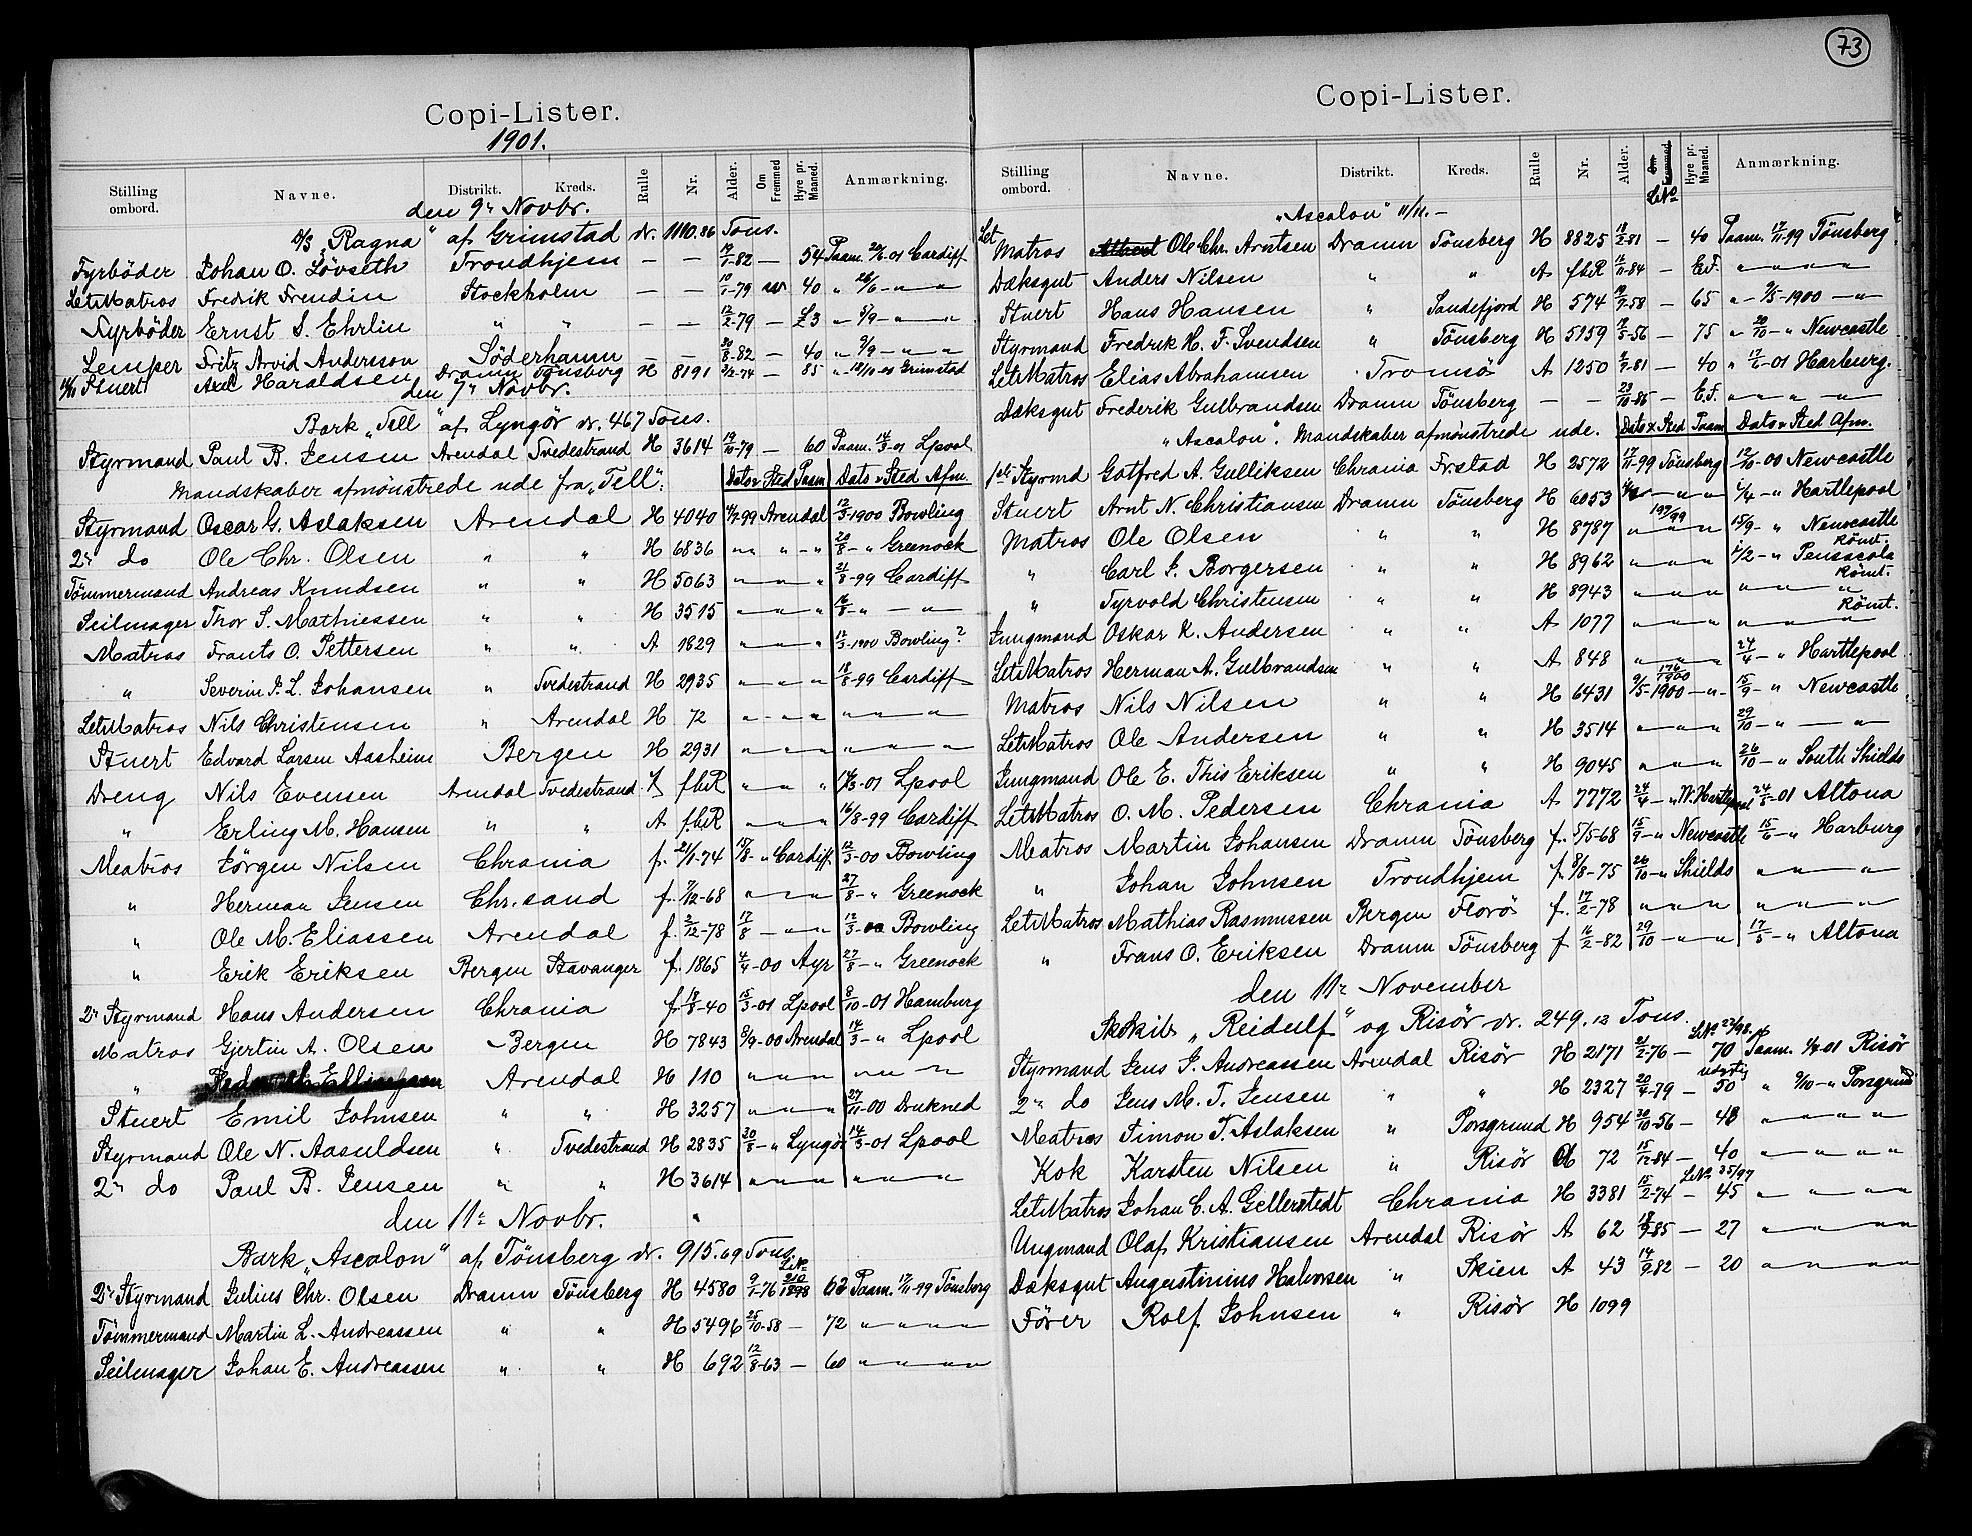 Copi-Lister.
1901.
Stilling ombord. Navne. Distrikt. Kreds. Rulle Nr. Alder. Om Fremmed Hyre pr. Maaned. Anmærkning.
den 9de Novbr.
D/S "Ragna" af Grimstad dr. 1110.86 Tons.
Fyrböder Johan O. Lövseth Trondhjem — — 19/1-82 — 54 Paam. 20/6-01 Cardiff
LetMatros Fredrik Frendin Stockholm — — 10/1-79 40 " 28/6 - " - "
Fyrböder Ernst S. Ehrlin " " — — 12/2-79 — £3 " 5/9 - " - "
Lemper Fritz Arvid Andersson Söderhamn — — 30/8-82 — 40 " 9/9 - " - "
Stuert Axel Haraldsen Dramn Tönsberg H 8191 3/12-74 — 85 " 12/11-01 Grimstad
den 7de Novbr.
Bark "Tell" af Lyngör dr. 467 Tons.
Styrmand Paul B. Jensen Arendal Tvedestrand H 3614 19/10-79 — 60 Paam. 14/3-01 Lpool
Mandskaber afmönstrede ude fra "Tell": Dato & Sted Paam Dato & Sted Afm.
Styrmand Oscar G. Aslaksen Arendal H 4040 4/7-99 Arendal 12/3-1900 Bowling
2den do Ole Chr. Olsen " " H 6836 " " " - " 20/8 - " Greenock
Tömmermand Andreas Knudsen " " H 5063 " - " - " 21/8-99 Cardiff
Seilmager Thor S. Mathiessen " " H 3515 " - " " 16/8 - " — "
Matros Frants O. Pettersen " " A 1829 " - " " 12/3-1900 Bowling?
" Severin J. L. Johansen " Tvedestrand H 2935 " - " " 18/8-99 Cardiff
LetMatros Nils Christensen " Arendal H 72 " - " - " " - " - "
Stuert Edvard Larsen Aasheim Bergen H 2931 " - " - " " - " - "
Dreng Nils Evensen Arendal Tvedestrand fbR " - " " 14/3-01 Lpool
" Erling M. Hansen " " A fbR " - " - " 16/8-99 Cardiff
Matros Jörgen Nilsen Chrania f. 21/1-74 17/8 - " Cardiff 12/3-00 Bowling
" Herman Jensen Chr.sand f. 7/12-68 " - " - " 27/8 - " Greenock
" Ole M. Eliassen Arendal f. 2/12-78 17/8 - " - " 12/3-00 Bowling
" Erik Eriksen Bergen Stavanger f. 1865 4/4-00 Ayr 27/8 - " Greenock
2den Styrmand Hans Andersen Chrania f. 18/9-40 15/3-01 Lpool 8/10-01 Hamburg
Matros Gjertin A. Olsen Bergen H 7843 8/9-00 Arendal 14/3 - " Lpool
" Ellingsen Arendal H 110 " - " - " " - " - "
Stuert Emil Johnsen " " H 3257 " - " - " 27/11-00 Druknet
Styrmand Ole N. Aasuldsen " Tvedestrand H 2835 30/8 - " Lyngör 14/3-01 Lpool
2den do Paul B. Jensen " " H 3614 " - " - " " - " - "
den 11te Novbr.
Bark "Ascalon" af Tönsberg dr. 915.69 Tons. LNo
2den Styrmand Julius Chr. Olsen Dramn Tönsberg H 4580 9/1-76 210/1898 62 Paam. 17/11-99 Tönsberg
Tömmermand Martin L. Andreassen " " H 5496 25/10-58 — 72 " - " - " - "
Seilmager Johan E. Andreassen " " H 692 12/8-63 — 60 " - " - " - "
73
Copi-Lister.
Stilling ombord. Navne. Distrikt. Kreds. Rulle Nr. Alder. Om Fremmed. LNo Hyre pr. Maaned. Anmærkning.
"Ascalon" 11/11. —
Let Matros Ole Chr. Arntsen Dramn Tönsberg H 8825 18/2-81 — 40 Paam. 17/11-99 Tönsberg
Dæksgut Anders Nilsen " " A fbR 16/11-84 — E.F. " - " - " - "
Stuert Hans Hansen " Sandefjord H 574 19/9-58 — 65 " - 9/5-1900 — "
Styrmand Fredrik H. F. Svendsen " Tönsberg H 5159 19/3-56 — 75 " 20/10 - " Newcastle
LetMatros Elias Abrahamsen Tromsö A 1250 2/9-81 — 40 " 17/6-01 Harburg.
Dæksgut Frederik Gulbrandsen Dramn Tönsberg — — 23/10-86 — E.F. " - " - " - "
"Ascalon". Mandskaber afmönstrede ude. Dato & Sted Paam Dato & Sted Afm.
1ste Styrmd Gotfred A. Gulliksen Chrania Fr.stad H 2572 17/11-99 Tönsberg 12/10-00 Newcastle
Stuert Arnt N. Christiansen Dramn Tönsberg H 6053 — " - " 1/4 - " Hartlepool
Matros Ole Olsen " " H 8787 197/99 " - " - " 15/9 - " Newcastle
" Carl J. Borgersen " " H 8962 " - " - " 1/2 - " Pensacola Römt.
" Tyrvold Christensen " " H 8943 " - " - " " — " Römt.
Jungmand Oskar K. Andersen " " A 1077 " - " - " " - " - " Römt.
LetMatros Herman A. Gulbrandsen " " A 848 " - " - " 24/4 - " Hartlepool
Matros Nils Nilsen " " H 6431 176/1900 9/5-1900 - " - 15/9 - " Newcastle
LetMatros Ole Andersen " " H 3514 " - " - " 29/10 - " — "
Jungmand Ole E. This Eriksen " " H 9045 " - " - " 26/10 - " South Shields
LetMatros O. M. Pedersen Chrania A 7772 24/4 - " W. Hartlepool 24/5-01 Altona
Matros Martin Johansen Dramn Tönsberg f. 5/5-68 15/9 - " Newcastle 15/6 - " Harburg
" Johan Johnsen Trondhjem f. 8/8-75 26/10 - " Shields " - " - "
LetMatros Mathias Rasmussen Bergen Florö f. 17/2-78 " - " - " " - " - "
" Frans O. Eriksen Dramn Tönsberg f 16/2-82 29/10 - " - " 17/5 - " Altona
den 11te November
Sk.Skib "Reidulf" og Risör dr. 249.12 Tons.
Styrmand Jens J. Andreassen Arendal Risör H 2171 21/2-76 — LNo 27/98 70 Paam. 1/8-01 Risör
2den do Jens M. T. Jensen " " H 2327 20/4-79 — 50 " 9/10 - " Porsgrund
Matros Simon T. Aslaksen " Porsgrund H 954 20/10-56 — 48 " - " - " - "
Kok Karsten Nilsen " Risör A 72 15/12-84 — 40 " - " - " - "
LetMatros Johan C. A. Gellerstedt Chrania H 3381 15/2-74 — LNo 35/97 45 " - " - " - "
Ungmand Olaf Kristiansen Arendal Risör A 62 18/9-85 — 27 " - " - " - "
Dæksgut Augustinius Halvorsen " Skien A 43 14/9-82 — 20 " - " - " - "
Förer Rolf Johnsen " Risör H 1099